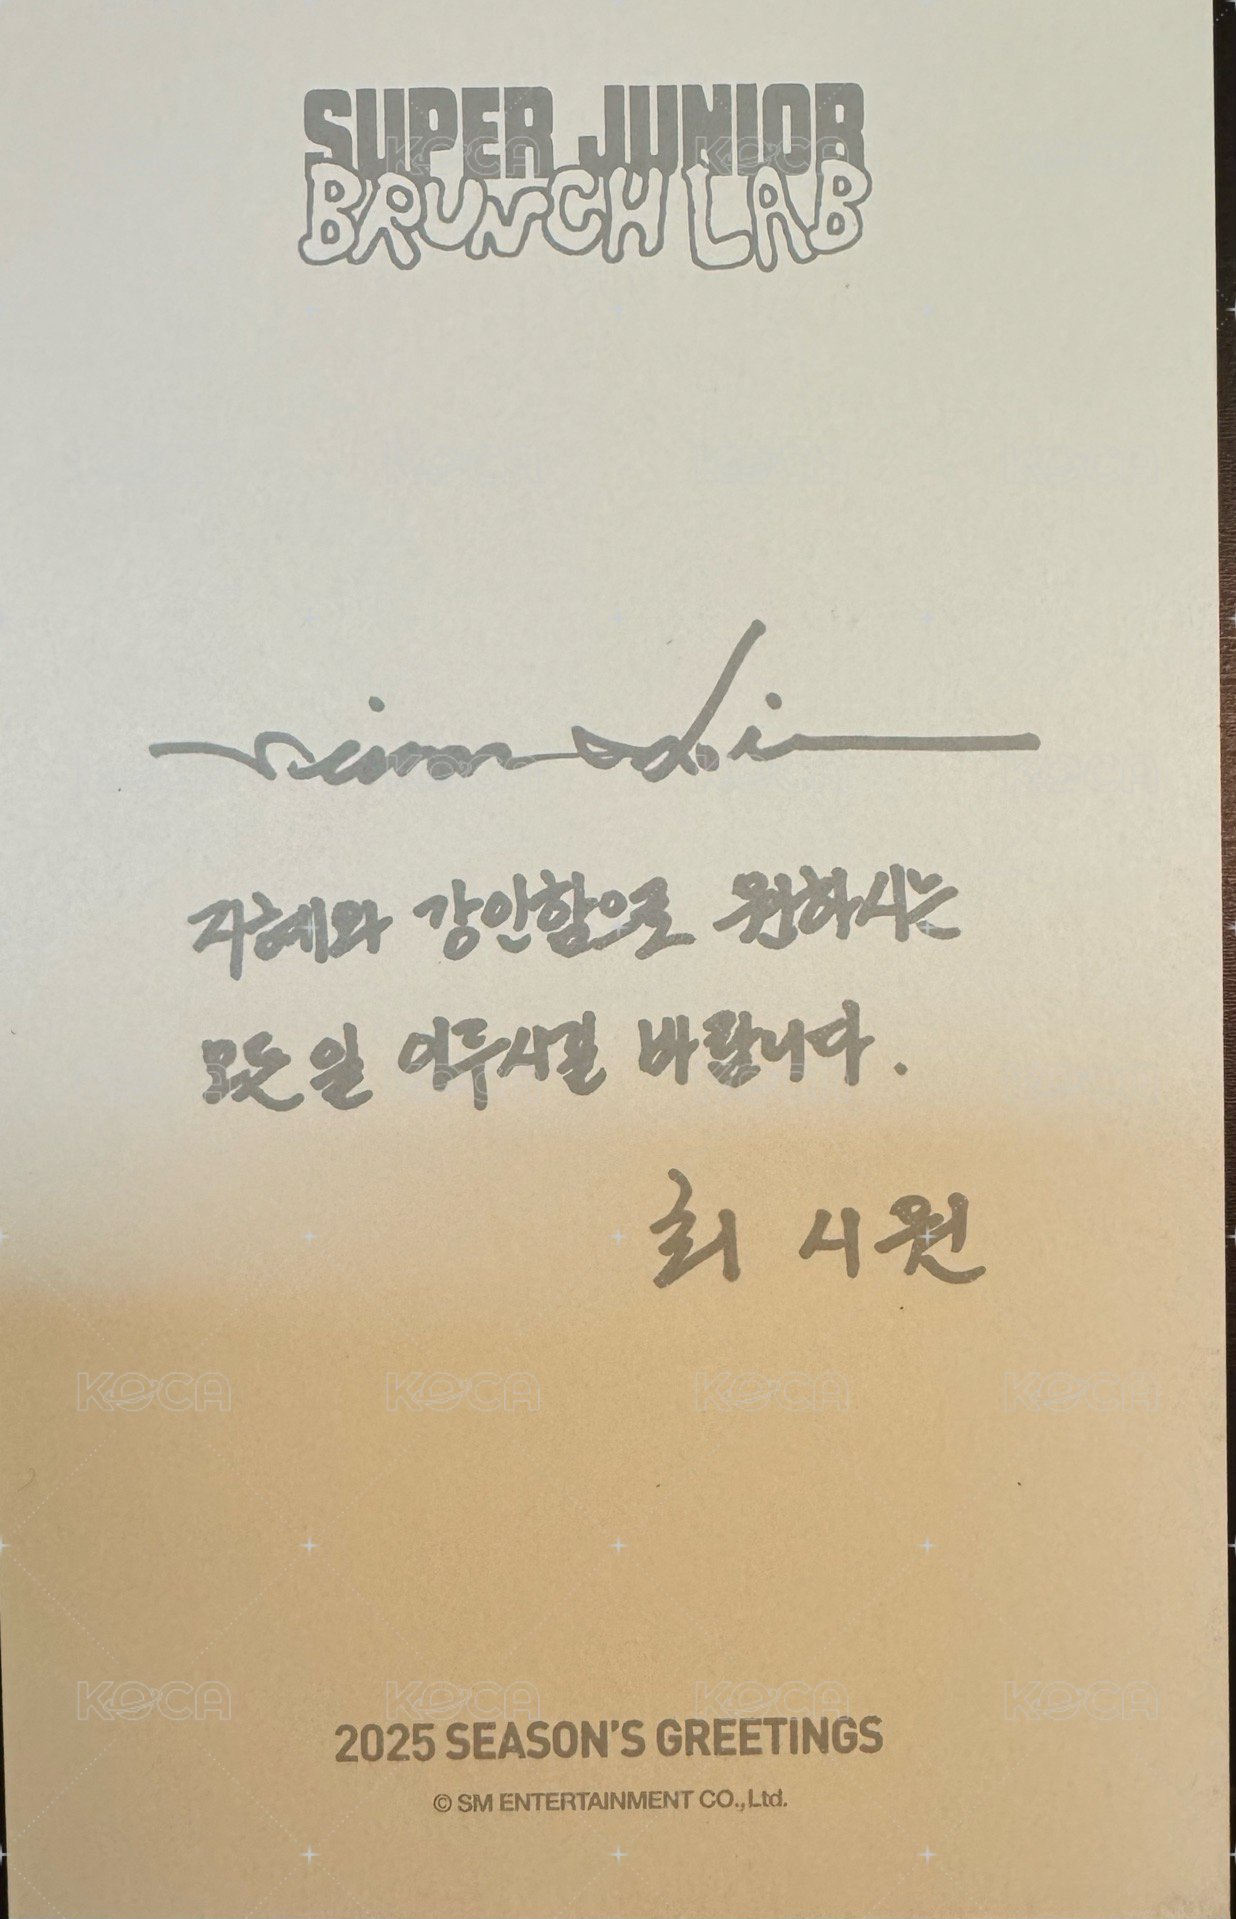 SUPER JUNIOR
BRUNCH LAB
지혜와 강인함으로 원하시는
모든 일 이루시길 바랍니다.
최 시원
KOCA KOCA KOCA KOCA
KOCA KOCA KOCA KOCA
2025 SEASON'S GREETINGS
© SM ENTERTAINMENT CO., Ltd.